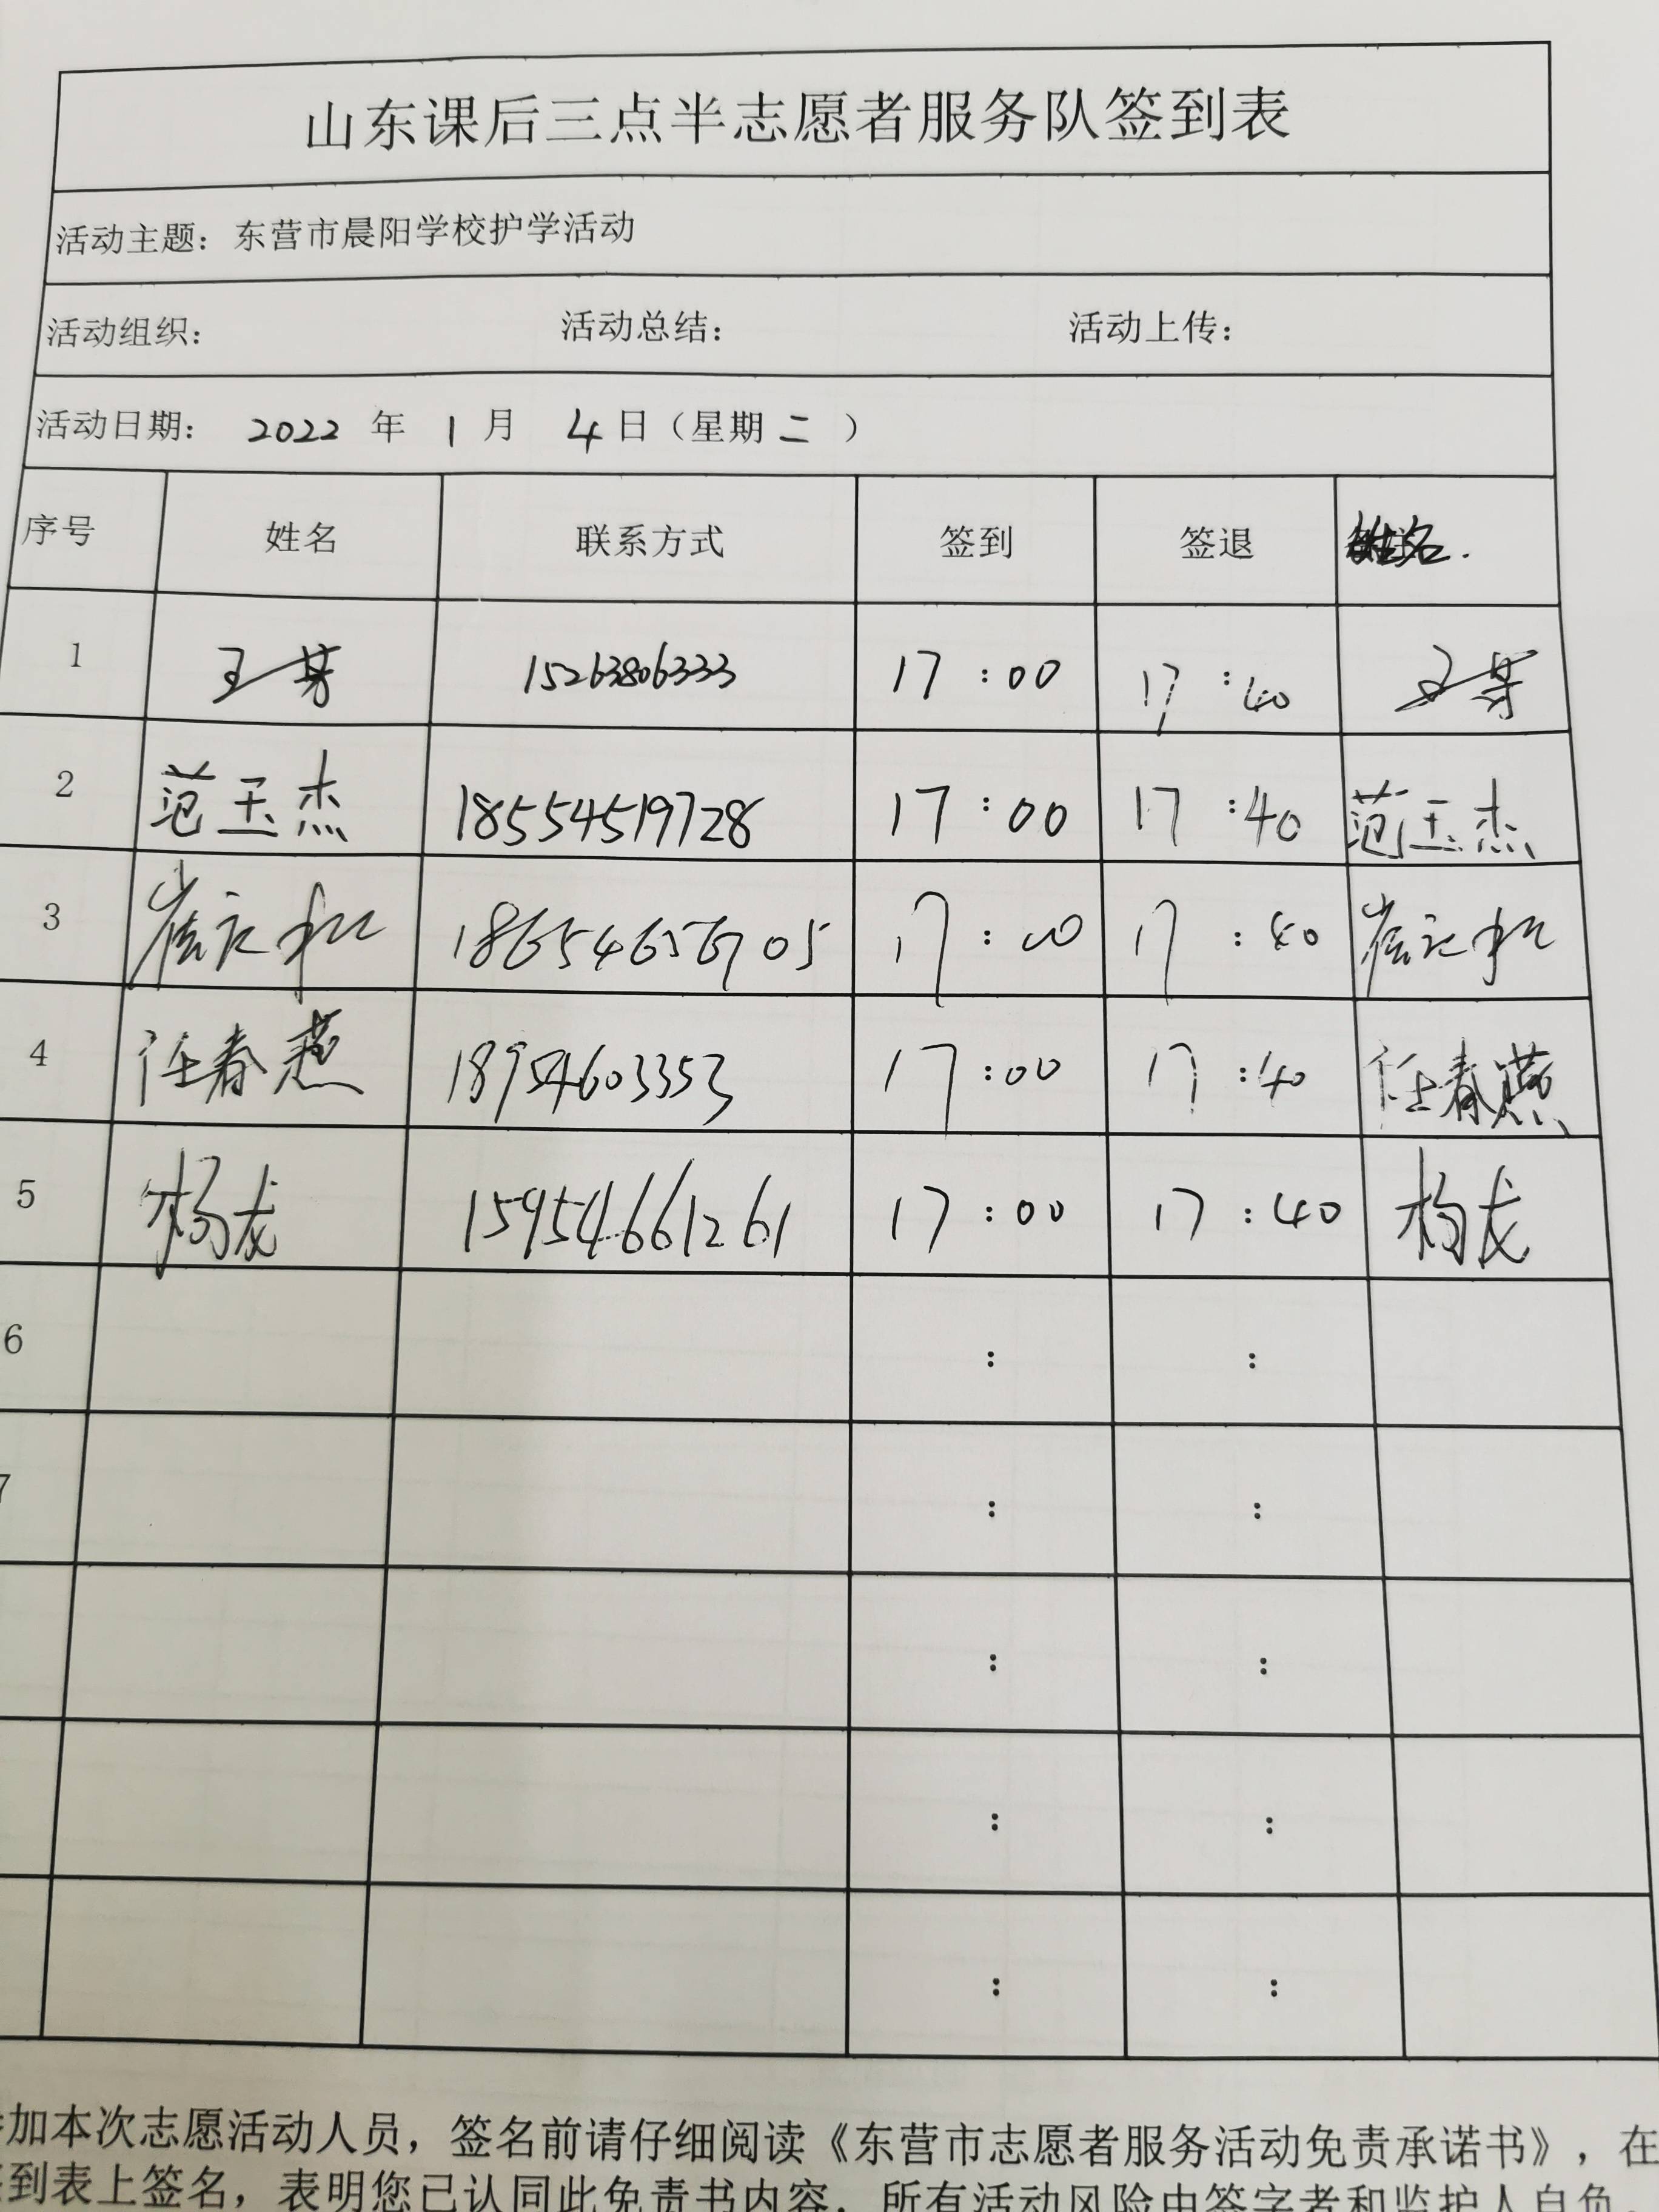 山东课后三点半志愿者服务队签到表
活动主题：东营市晨阳学校护学活动
活动组织： 活动总结： 活动上传：
活动日期： 2022 年 1 月 4 日（星期 二 ）
序号 姓名 联系方式 签到 签退 姓名.
1 王芳 15263806333 17:00 17:40 王芳
2 范玉杰 18554519728 17:00 17:40 范玉杰
3 崔 18654656705 17:00 17:40 崔
4 任春燕 18954603353 17:00 17:40 任春燕
5 杨龙 15954661261 17:00 17:40 杨龙
6 : :
7 : :
: :
: :
: :
加本次志愿活动人员，签名前请仔细阅读《东营市志愿者服务活动免责承诺书》，在
到表上签名，表明您已认同此免责书内容，所有活动风险由签字者和监护人自负。